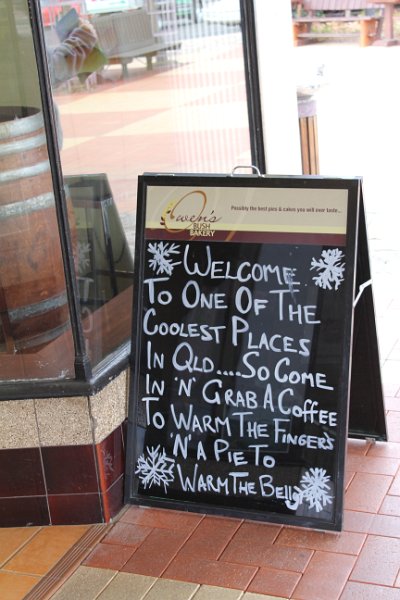 Owen's
BUSH
BAKERY
Possibly the best pies & cakes you will ever taste...
WELCOME
TO ONE OF THE
COOLEST PLACES
IN QLD....SO COME
IN 'N' GRAB A COFFEE
TO WARM THE FINGERS
'N' A PIE TO
WARM THE BELLY